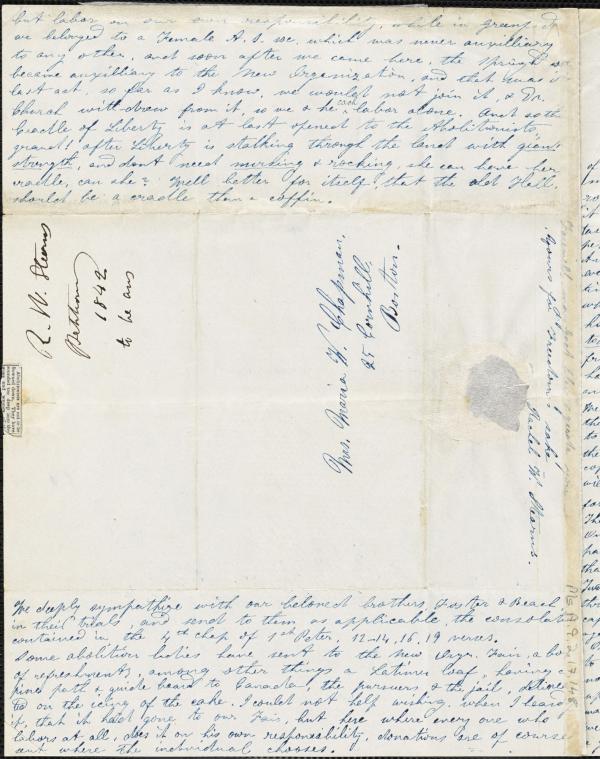 but labor on our own responsibility, while in Greenfield
we belonged to a Female A. S. Soc. which was never auxilliary
to any other, and soon after we came here, the Springf. soc
became auxilliary to the New Organization, and that was its
last act, so far as I know, we would not join it, & Dr.
Church withdrew from it, so we & he each labor alone. And so the
Cradle of Liberty is at last opened to the Abolitionists,
grand! after Liberty is stalking through the land with giant
strength, and dont need nursing & rocking, she can have her
cradle, can she? Well better for itself, that the old Hall
should be a cradle than a coffin.
R. W. Stearns
Petitions
1842
to be ans
Mrs. Maria W. Chapman.
25 Cornhill.
Boston.
Yours for Freedom's sake,
Rachel W. Stearns.
Ms. A. 9. 2. 17. 48
We deeply sympathize with our beloved brothers, Foster & Beach
in their trials, and send to them as applicable, the consolation
contained in the 4th chap of 1st Peter, 12-14, 16, 19 verses.
Some abolition ladies have sent to the New Orgn. Fair, a box
of refreshments, among other things a Latimer loaf, having a
path & guide board to Canada, the pursuers & the jail,
on the icing of the cake. I could not help wishing, when I heard
it, that it had gone to our Fair, but here where every one who
labors at all, does it on his own responsibility, donations are of course
sent where the individual chooses.